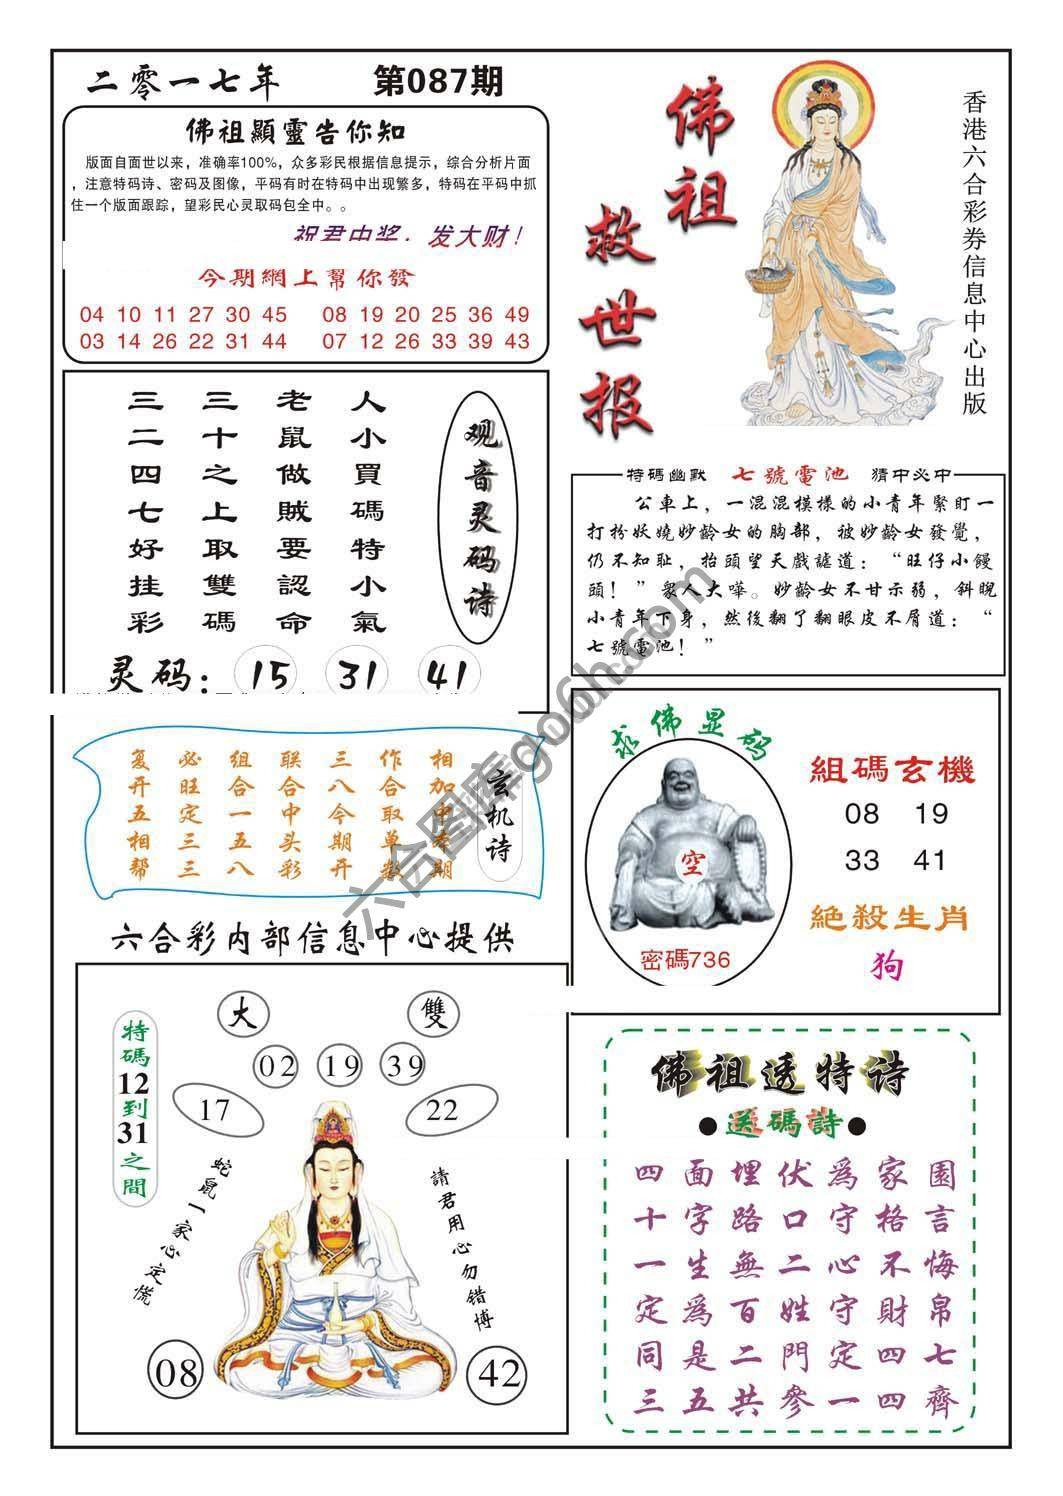 二零一七年 第087期
佛祖顯靈告你知
版面自面世以来，准确率100%，众多彩民根据信息提示，综合分析片面
，注意特码诗、密码及图像，平码有时在特码中出现繁多，特码在平码中抓
住一个版面跟踪，望彩民心灵取码包全中。。
祝君中奖，发大财！
今期網上幫你發
04 10 11 27 30 45 08 19 20 25 36 49
03 14 26 22 31 44 07 12 26 33 39 43
佛祖救世报
香港六合彩券信息中心出版
观音灵码诗
人小買碼特小氣
老鼠做賊要認命
三十之上取雙碼
三二四七好挂彩
灵码： 15 31 41
特碼幽默 七號電池 猜中必中
公車上，一混混模樣的小青年緊盯一
打扮妖嬈妙齡女的胸部，被妙齡女發覺，
仍不知耻，抬頭望天戲謔道：“旺仔小饅
頭！”衆人大嘩。妙齡女不甘示弱，斜睨
小青年下身，然後翻了翻眼皮不屑道：“
七號電池！”
玄机诗
相加中本期
作合取单数
三八今期开
联合中头彩
组合一五八
必旺定三三
复开五相帮
求佛显码
空
密碼736
組碼玄機
08 19
33 41
絶殺生肖
狗
六合彩内部信息中心提供
大 雙
02 19 39
17 22
特碼12到31之間
蛇鼠一家心定慌
請君用心勿错博
08 42
佛祖透特诗
●送碼詩●
四面埋伏爲家園
十字路口守格言
一生無二心不悔
定爲百姓守財帛
同是二門定四七
三五共參一四齊
六合图库go66h.com